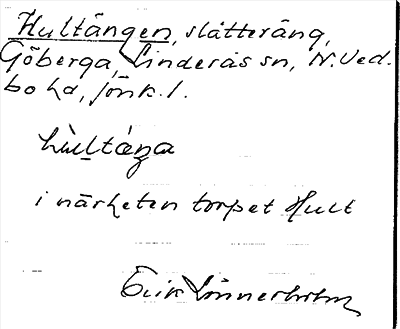 Hultängen, slåtteräng,
Göberga, Linderås sn, N. Ved.
bo hd, Jönk. l.
hùltáŋa
i närheten torpet Hult
Erik Lönnerholm